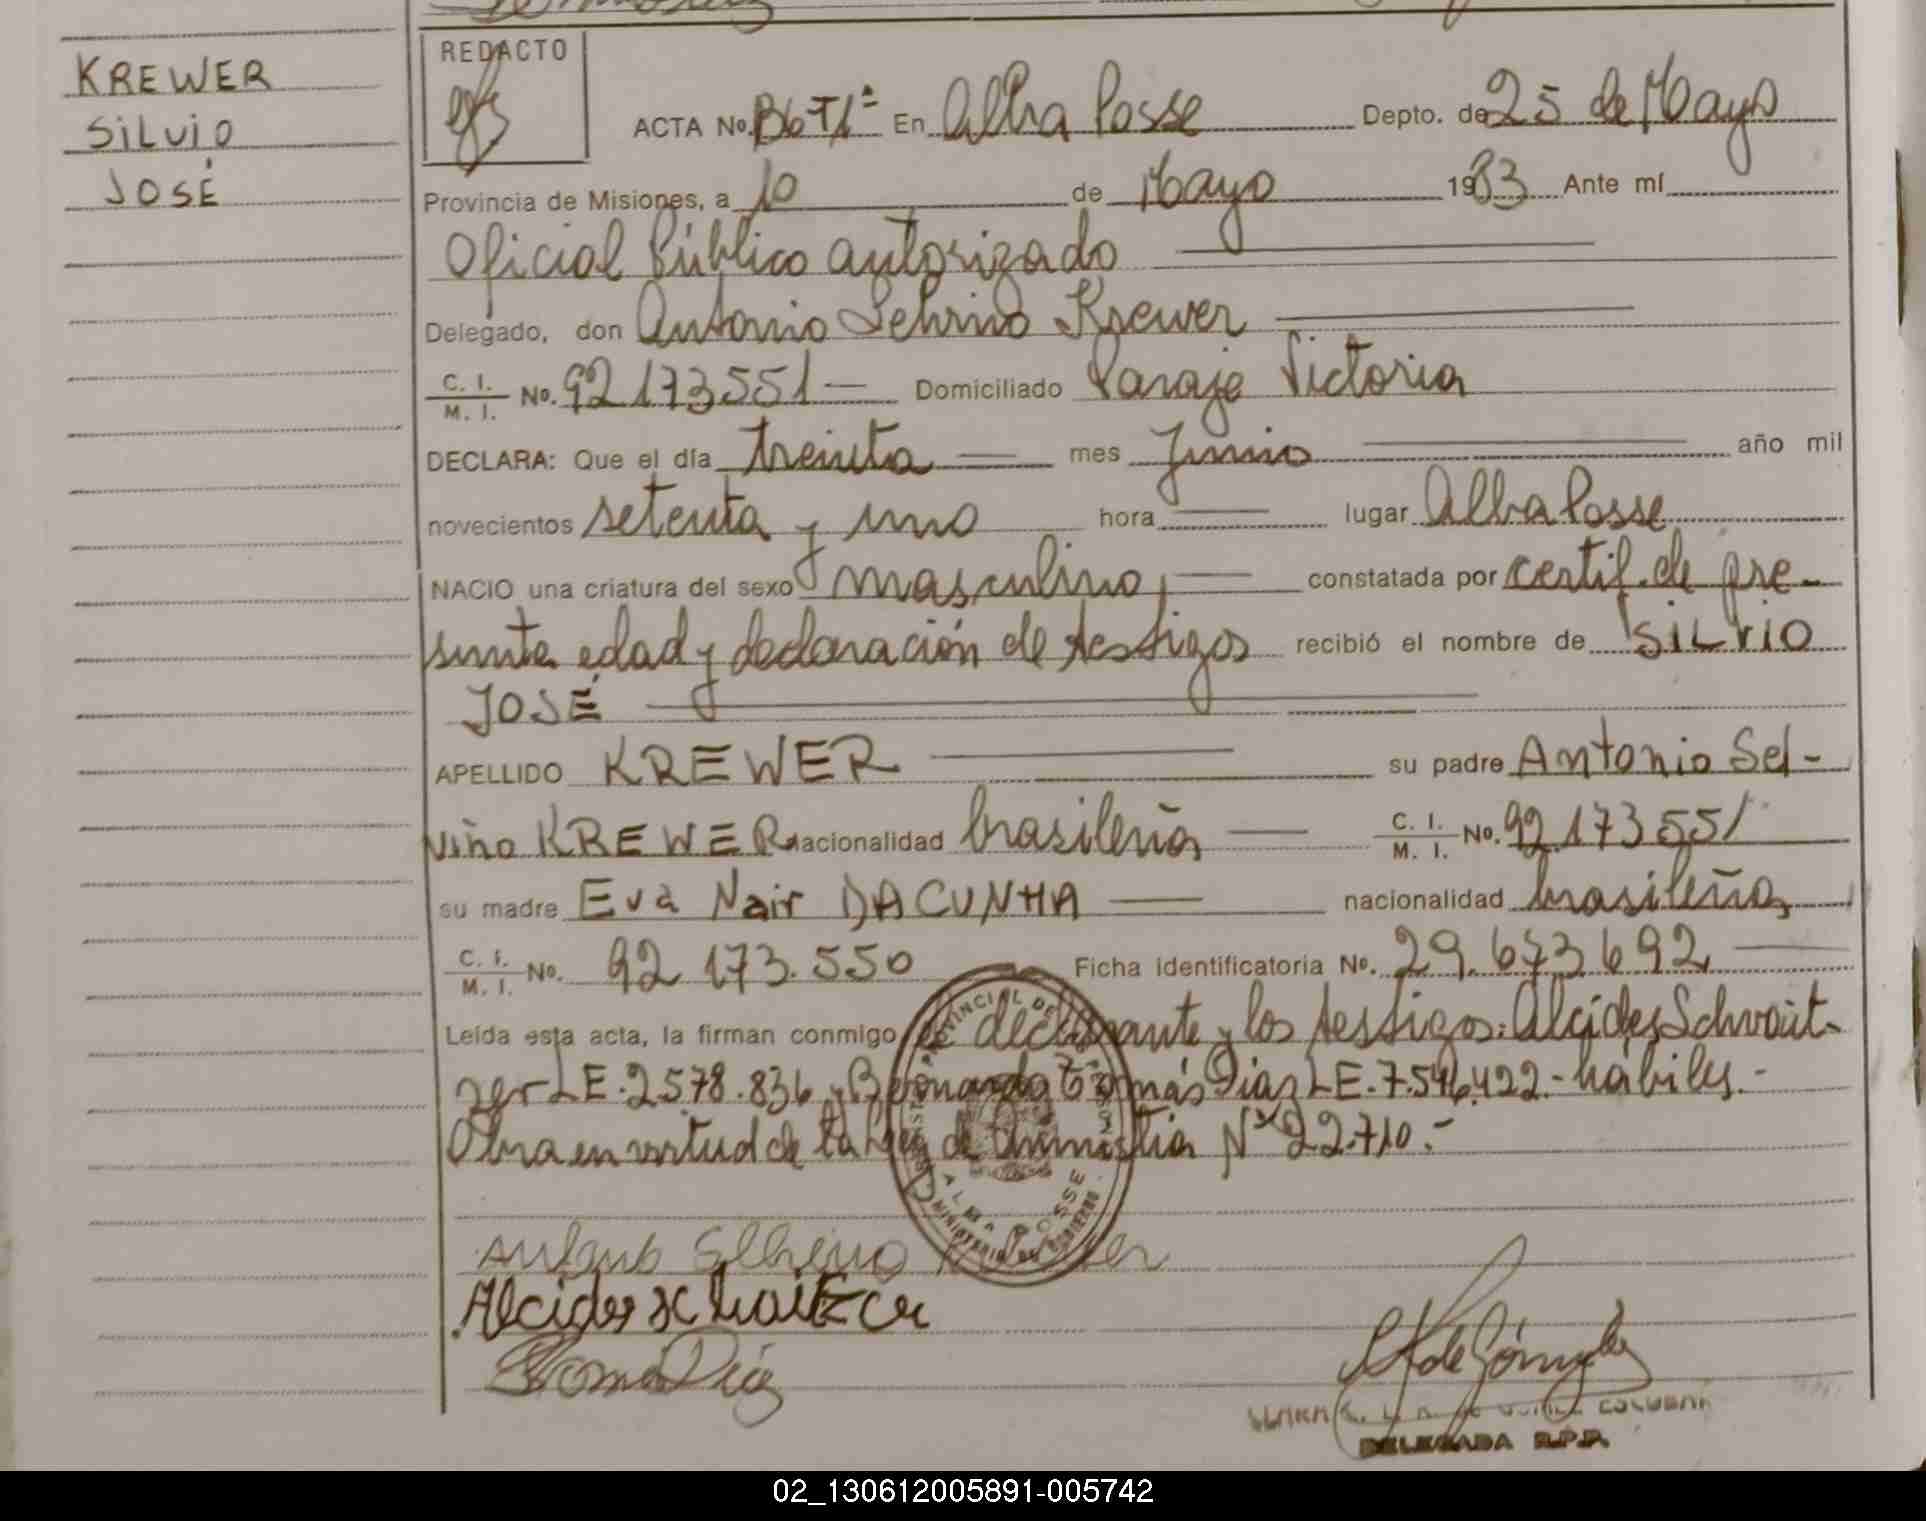 KREWER
SILVIO
JOSÉ
REDACTO
ACTA No. B6 T1ª En Alba Posse Depto. de 25 de Mayo
Provincia de Misiones, a 10 de Mayo 1983 Ante mí
Oficial Público autorizado
Delegado, don Antonio Selvino Krewer
C. I. / M. I. No. 92173551 — Domiciliado Paraje Victoria
DECLARA: Que el día treinta — mes Junio año mil
novecientos setenta y uno hora — lugar Alba Posse
NACIO una criatura del sexo masculino, — constatada por certif. de pre-
sunta edad y declaración de testigos recibió el nombre de SILVIO
JOSÉ
APELLIDO KREWER su padre Antonio Sel-
viño KREWER nacionalidad brasileña — C. I. / M. I. No. 92.173551
su madre Eva Nair DACUNHA — nacionalidad brasileña
C. I. / M. I. No. 92 173.550 Ficha identificatoria No. 29.673.692
Leída esta acta, la firman conmigo el declarante y los testigos: Alcides Schvait-
zer LE. 2578.836 y Bernardo Tomás Diaz LE. 7.546.422.- hábiles.-
Obra en virtud de la Ley de Amnistia Nº 22.710.-
ALBA POSSE
MINISTERIO DE GOBIERNO
Antonio Selvino
Alcides
Tomas Diaz
DELEGADA R.P.P.
02_130612005891-005742